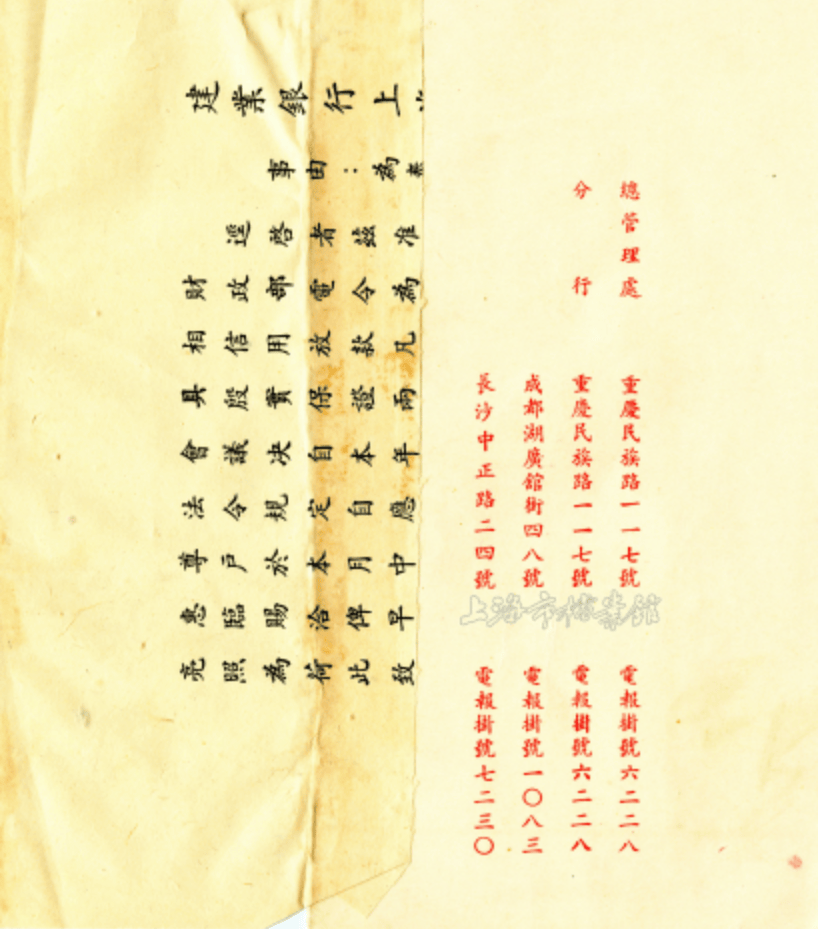 建業銀行上
事由：為
逕啓者茲准
財政部電令為
相信用放款凡
具殷實保證兩
會議決自本年
法令規定自應
尊戶於本月中
惠臨賜洽俾早
亮照為荷此致
總管理處 重慶民族路一一七號 電報掛號六二二八
分行 重慶民族路一一七號 電報掛號六二二八
成都湖廣館街四八號 電報掛號一〇八三
長沙中正路二四號 電報掛號七二三〇
上海市檔案館